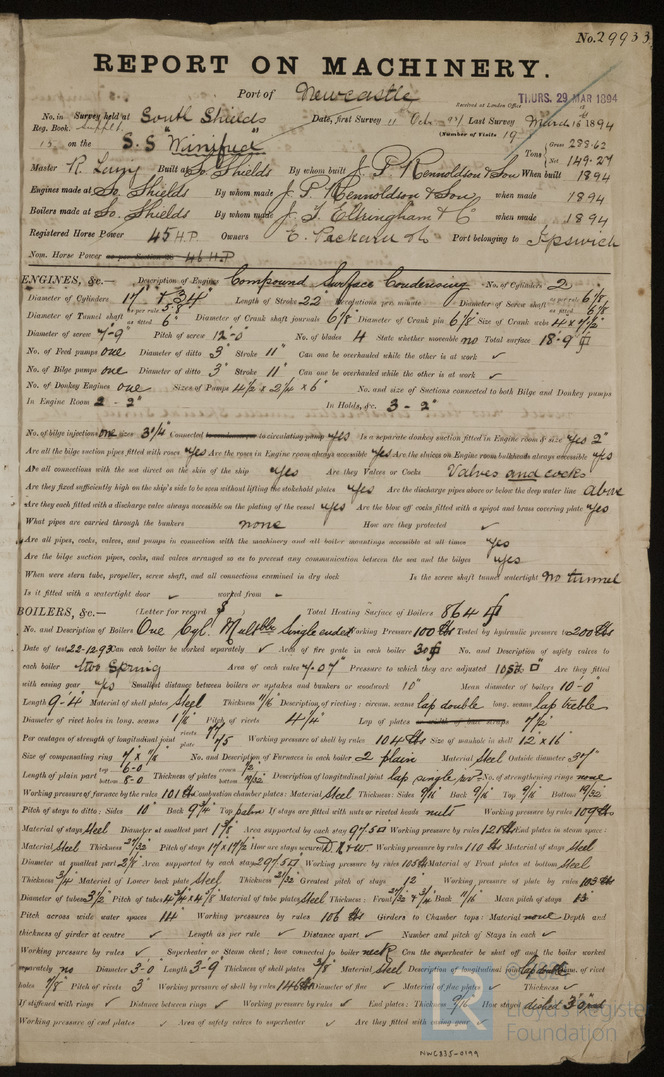 No. 29933
REPORT ON MACHINERY.
Port of Newcastle
Received at London Office THURS. 29 MAR 1894
No. in Survey held at South Shields Date, first Survey 11 Oct Last Survey March 16th 1894
Reg. Book. Supplt. (Number of Visits 19
15 on the S.S "Winifred" Tons Gross 288.62 Net 149.27
Master R. Built at So. Shields By whom built J. P. Rennoldson & Son When built 1894
Engines made at So. Shields By whom made J. P. Rennoldson & Son when made 1894
Boilers made at So. Shields By whom made J. T. Eltringham & Co when made 1894
Registered Horse Power 45 H.P. Owners E. Packard Port belonging to Ipswich
Nom. Horse Power as per Section 28 46 H.P
ENGINES, &c.— Description of Engines Compound Surface Condensing No. of Cylinders 2
Diameter of Cylinders 17" & 34" Length of Stroke 22 Revolutions per minute Diameter of Screw shaft as per rule 6 1/8 as fitted 6 7/8
Diameter of Tunnel shaft as per rule 5.8 as fitted 6" Diameter of Crank shaft journals 6 7/8 Diameter of Crank pin 6 7/8 Size of Crank webs 4 x 7 1/2
Diameter of screw 7'-9" Pitch of screw 12'-0" No. of blades 4 State whether moveable no Total surface 18'-9"
No. of Feed pumps one Diameter of ditto 3" Stroke 11" Can one be overhauled while the other is at work ✓
No. of Bilge pumps one Diameter of ditto 3" Stroke 11" Can one be overhauled while the other is at work ✓
No. of Donkey Engines one Sizes of Pumps 4 1/2 x 2 1/4 x 6" No. and size of Suctions connected to both Bilge and Donkey pumps
In Engine Room 2 - 2" In Holds, &c. 3 - 2"
No. of bilge injections one sizes 3 1/4 Connected to condenser, or to circulating pump yes Is a separate donkey suction fitted in Engine room & size yes 2"
Are all the bilge suction pipes fitted with roses yes Are the roses in Engine room always accessible yes Are the sluices on Engine room bulkheads always accessible yes
Are all connections with the sea direct on the skin of the ship yes Are they Valves or Cocks Valves and cocks
Are they fixed sufficiently high on the ship's side to be seen without lifting the stokehold plates yes Are the discharge pipes above or below the deep water line above
Are they each fitted with a discharge valve always accessible on the plating of the vessel yes Are the blow off cocks fitted with a spigot and brass covering plate yes
What pipes are carried through the bunkers none How are they protected ✓
Are all pipes, cocks, valves, and pumps in connection with the machinery and all boiler mountings accessible at all times yes
Are the bilge suction pipes, cocks, and valves arranged so as to prevent any communication between the sea and the bilges yes
When were stern tube, propeller, screw shaft, and all connections examined in dry dock Is the screw shaft tunnel watertight no tunnel
Is it fitted with a watertight door ✓ worked from -
BOILERS, &c.— (Letter for record S) Total Heating Surface of Boilers 864
No. and Description of Boilers One Cyl. Multble Single ended Working Pressure 100 lbs Tested by hydraulic pressure to 200 lbs
Date of test 22-12-93 Can each boiler be worked separately ✓ Area of fire grate in each boiler 30 No. and Description of safety valves to
each boiler two Spring Area of each valve 7.07" Pressure to which they are adjusted 105 Are they fitted
with easing gear yes Smallest distance between boilers or uptakes and bunkers or woodwork 10" Mean diameter of boilers 10'-0"
Length 9-4 Material of shell plates Steel Thickness 11/16 Description of riveting: circum. seams lap double long. seams lap treble
Diameter of rivet holes in long. seams 1 1/16 Pitch of rivets 4 1/4 Lap of plates or width of butt straps 7 1/2
Per centages of strength of longitudinal joint rivets 77 plate 75 Working pressure of shell by rules 104 lbs Size of manhole in shell 12 x 16
Size of compensating ring 7 x 7/8 No. and Description of Furnaces in each boiler 2 plain Material Steel Outside diameter 37
Length of plain part top 6-0 bottom 8-0 Thickness of plates crown bottom 19/32 Description of longitudinal joint lap single No. of strengthening rings none
Working pressure of furnace by the rules 101 lbs Combustion chamber plates: Material Steel Thickness: Sides 9/16 Back 9/16 Top 9/16 Bottom 19/32
Pitch of stays to ditto: Sides 10" Back 9 3/4 Top If stays are fitted with nuts or riveted heads nuts Working pressure by rules 109 lbs
Material of stays Steel Diameter at smallest part 1 7/8 Area supported by each stay 97.5 Working pressure by rules 121 lbs End plates in steam space:
Material Steel Thickness 27/32 Pitch of stays 17 x 17 1/2 How are stays secured D.N & W. Working pressure by rules 110 lbs Material of stays Steel
Diameter at smallest part 2 1/8 Area supported by each stay 297.5 Working pressure by rules 105 lbs Material of Front plates at bottom Steel
Thickness 3/4 Material of Lower back plate Steel Thickness 27/32 Greatest pitch of stays 12 Working pressure of plate by rules 103 lbs
Diameter of tubes 3 1/2 Pitch of tubes 4 3/4 x 4 7/8 Material of tube plates Steel Thickness: Front 27/32 & 3/4 Back 11/16 Mean pitch of stays 13
Pitch across wide water spaces 14 Working pressures by rules 106 lbs Girders to Chamber tops: Material none Depth and
thickness of girder at centre ✓ Length as per rule ✓ Distance apart ✓ Number and pitch of Stays in each ✓
Working pressure by rules ✓ Superheater or Steam chest; how connected to boiler neck Can the superheater be shut off and the boiler worked
separately no Diameter 3-0 Length 3-9" Thickness of shell plates 3/8 Material Steel Description of longitudinal joint lap double Diam. of rivet
holes 7/8 Pitch of rivets 3" Working pressure of shell by rules 146 lbs Diameter of flue ✓ Material of flue plates ✓ Thickness ✓
If stiffened with rings ✓ Distance between rings ✓ Working pressure by rules ✓ End plates: Thickness 9/16 How stayed dished 3'-0" rad
Working pressure of end plates ✓ Area of safety valves to superheater ✓ Are they fitted with easing gear ✓
© Lloyd's Register
Foundation
NWC835-0199